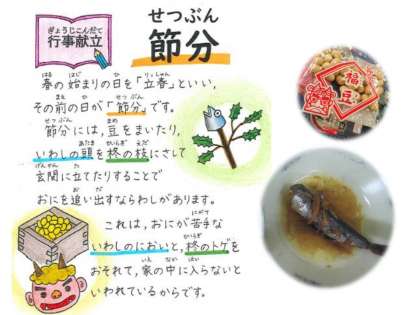 せつぶん
ぎょうじこんだて
行事献立
節分
はる はじ ひ りっしゅん
春の始まりの日を「立春」といい,
まえ ひ せつ ぶん
その前の日が「節分」です。
せつ ぶん まめ
節分には,豆をまいたり,
あたま ひいらぎ えだ
いわしの頭を柊の枝にさして
げんかん た
玄関に立てたりすることで
お だ
おにを追い出すならわしがあります。
にがて
これは,おにが苦手な
ひいらぎ
いわしのにおいと,柊のトゲを
いえ なか はい
おそれて,家の中に入らないと
いわれているからです。
福豆